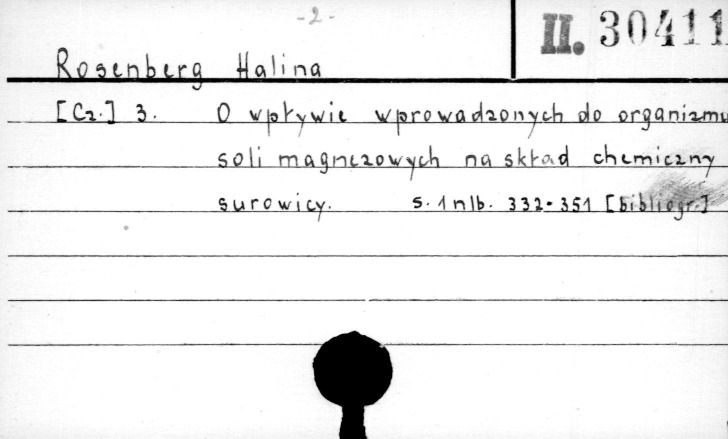 - 2 -
II. 30411
Rosenberg Halina
[Cz.] 3. O wpływie wprowadzonych do organizmu
soli magnezowych na skład chemiczny
surowicy. s. 1 nlb. 332-351 [bibliogr.]